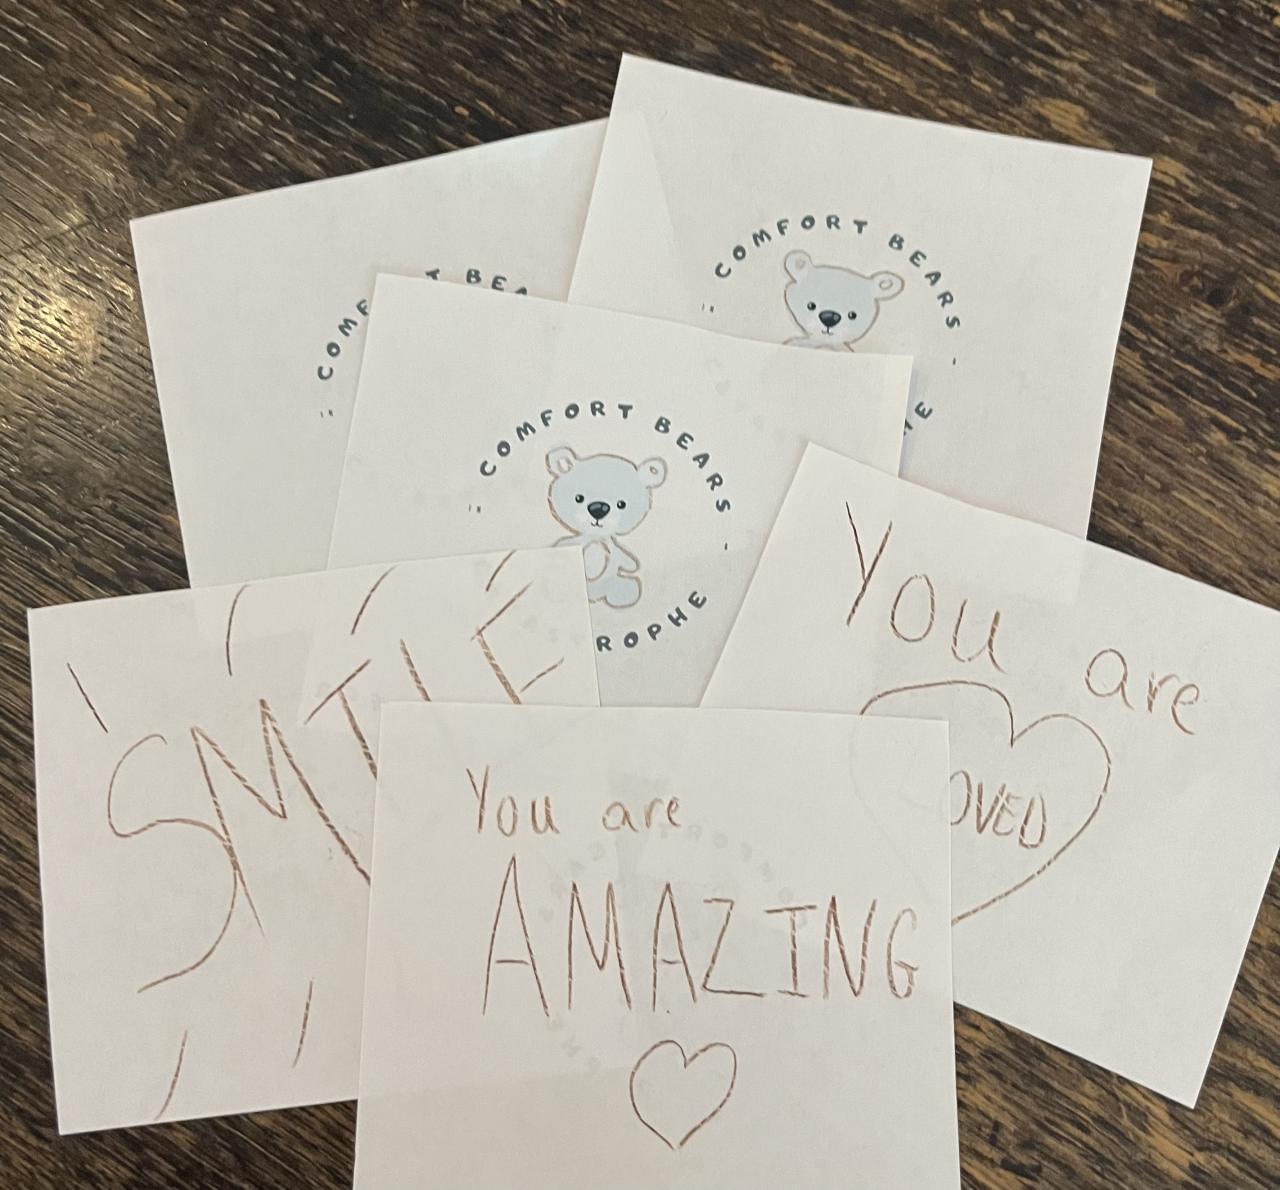 COMFORT BEARS
COMFORT BEARS
ROPHE
SMILE
You are
LOVED
You are
AMAZING